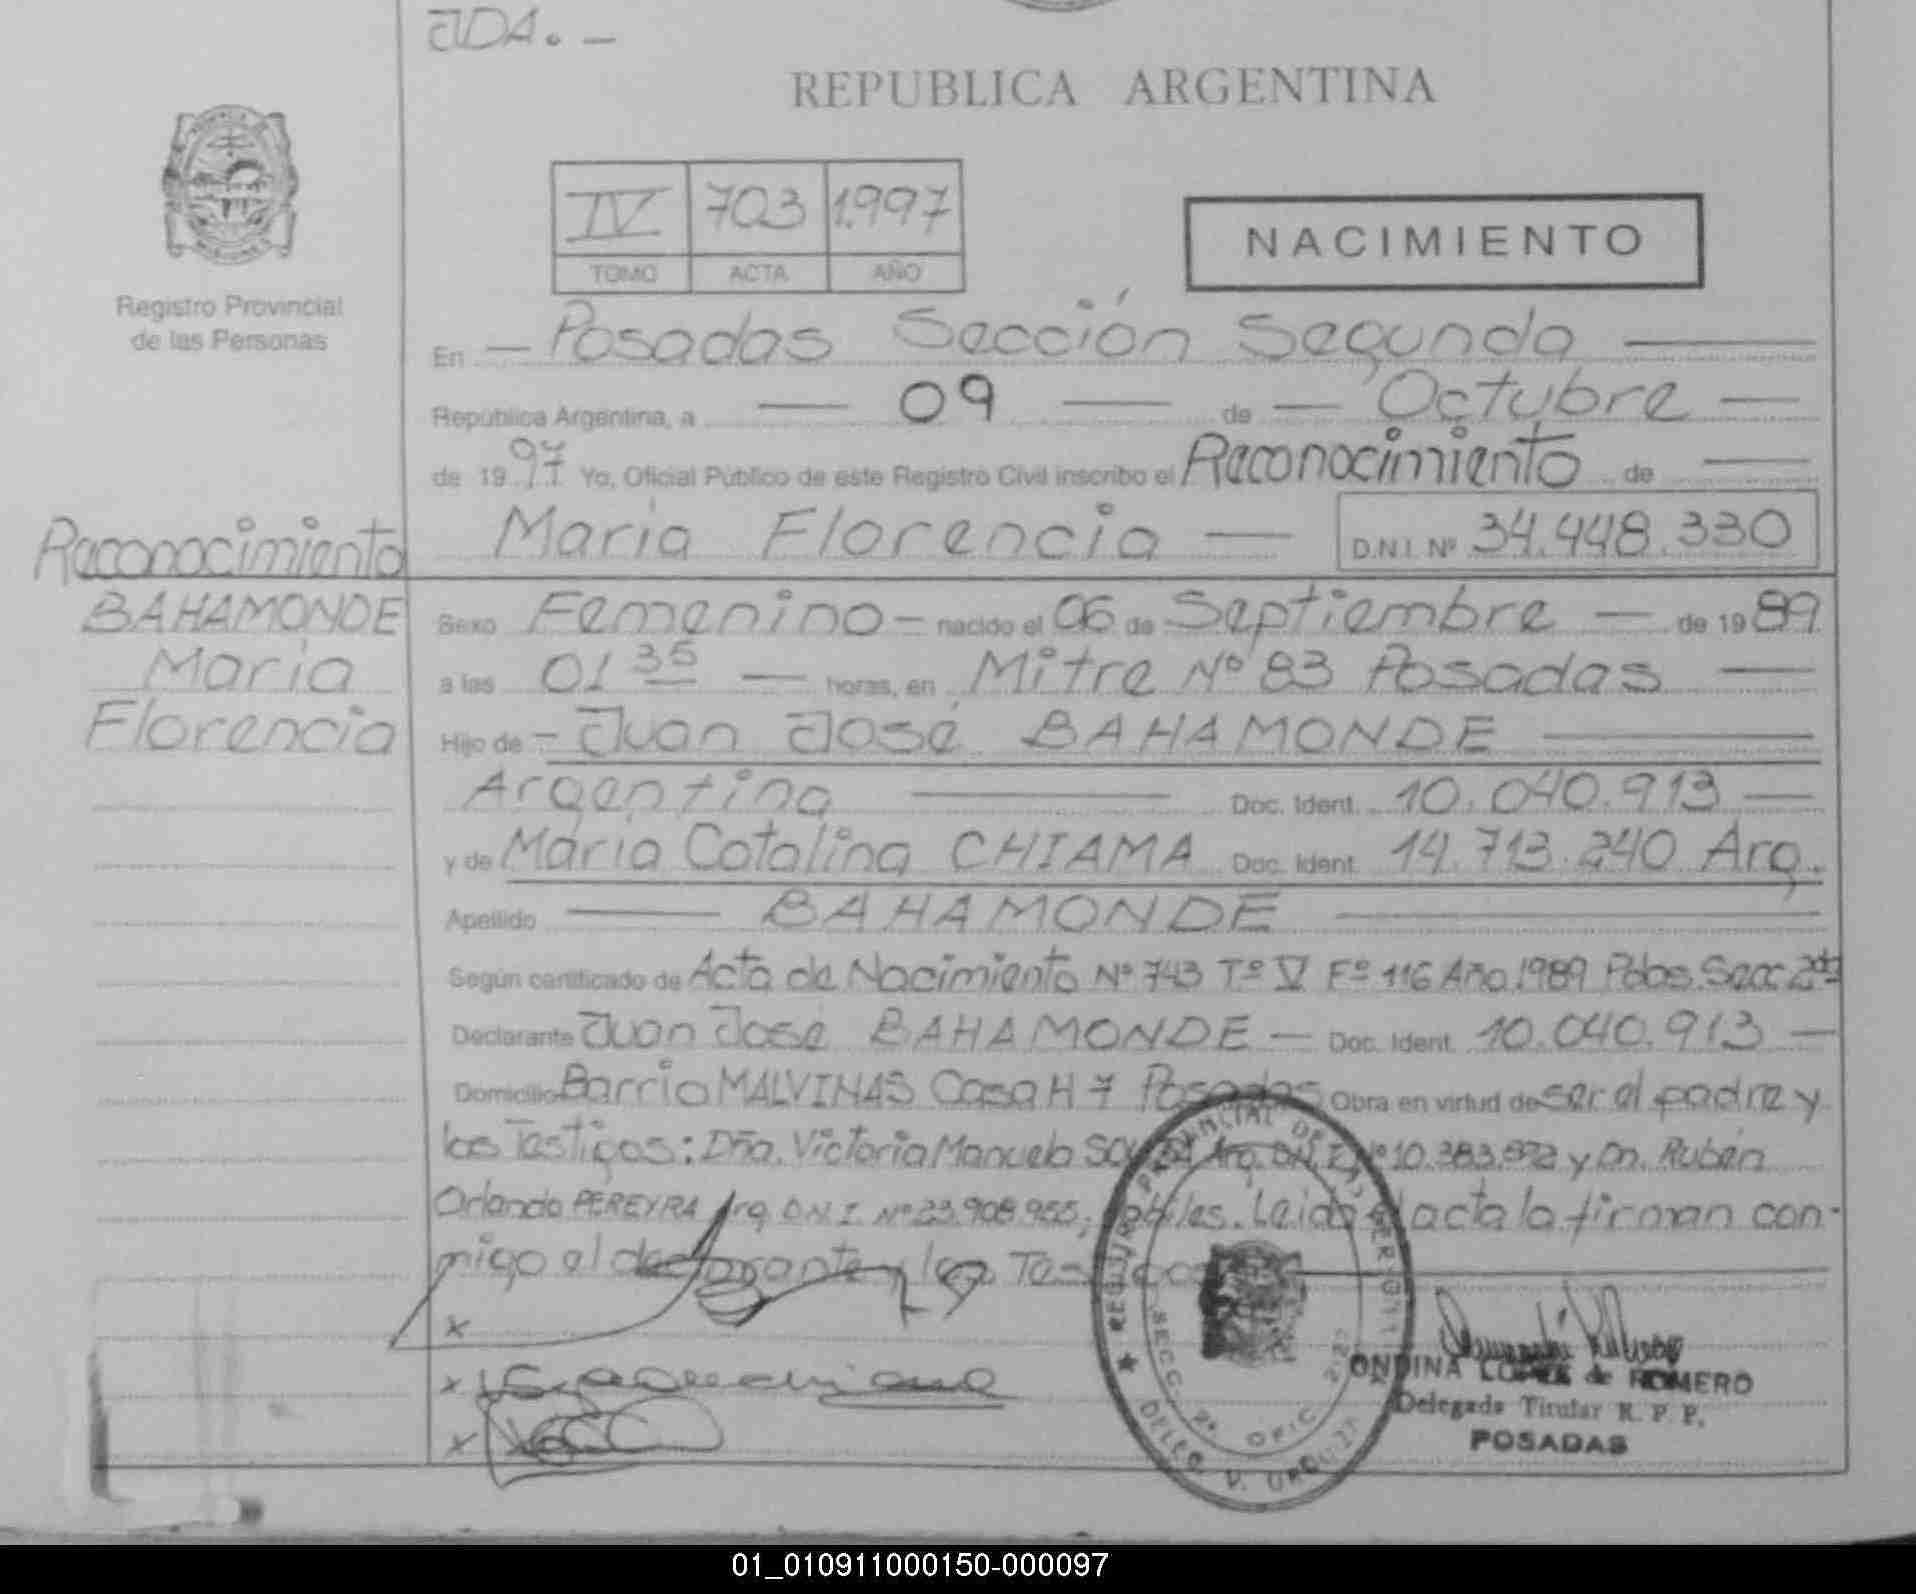 JDA. —
REPUBLICA ARGENTINA
IV 703 1.997
TOMO ACTA AÑO
NACIMIENTO
Registro Provincial
de las Personas
En — Posadas Sección Segunda —
República Argentina, a — 09 — de — Octubre —
de 19 97 Yo, Oficial Público de este Registro Civil inscribo el Reconocimiento de —
María Florencia — D.N.I. Nº 34.448.330
Reconocimiento
BAHAMONDE
María
Florencia
Sexo Femenino — nacido el 06 de Septiembre — de 19 89
a las 01 35 — horas, en Mitre Nº 83 Posadas —
Hijo de — Juan José BAHAMONDE —
Argentina — Doc. Ident. 10.040.913 —
y de María Catalina CHIAMA Doc. Ident. 14.713.240 Arg.
Apellido — BAHAMONDE —
Según certificado de Acta de Nacimiento Nº 743 Tº V Fº 116 Año 1989 Pdas. Secc 2da
Declarante Juan José BAHAMONDE — Doc. Ident. 10.040.913 —
Domicilio Barrio MALVINAS Casa H 7 Posadas Obra en virtud de ser el padre y
los Testigos: Dña. Victoria Manuela Arg. D.N.I. Nº 10.383.572 y Dn. Rubén
Orlando PEREYRA Arg. D.N.I. Nº 23.908.955, hábiles. Leida el acta la firman con-
migo el declarante y los Testigos
x
x
x
REGISTRO PROVINCIAL DE LAS PERSONAS
SECC. 2ª OFIC.
ONDINA LOPEZ de ROMERO
Delegada Titular R. P. P.
POSADAS
01_010911000150-000097